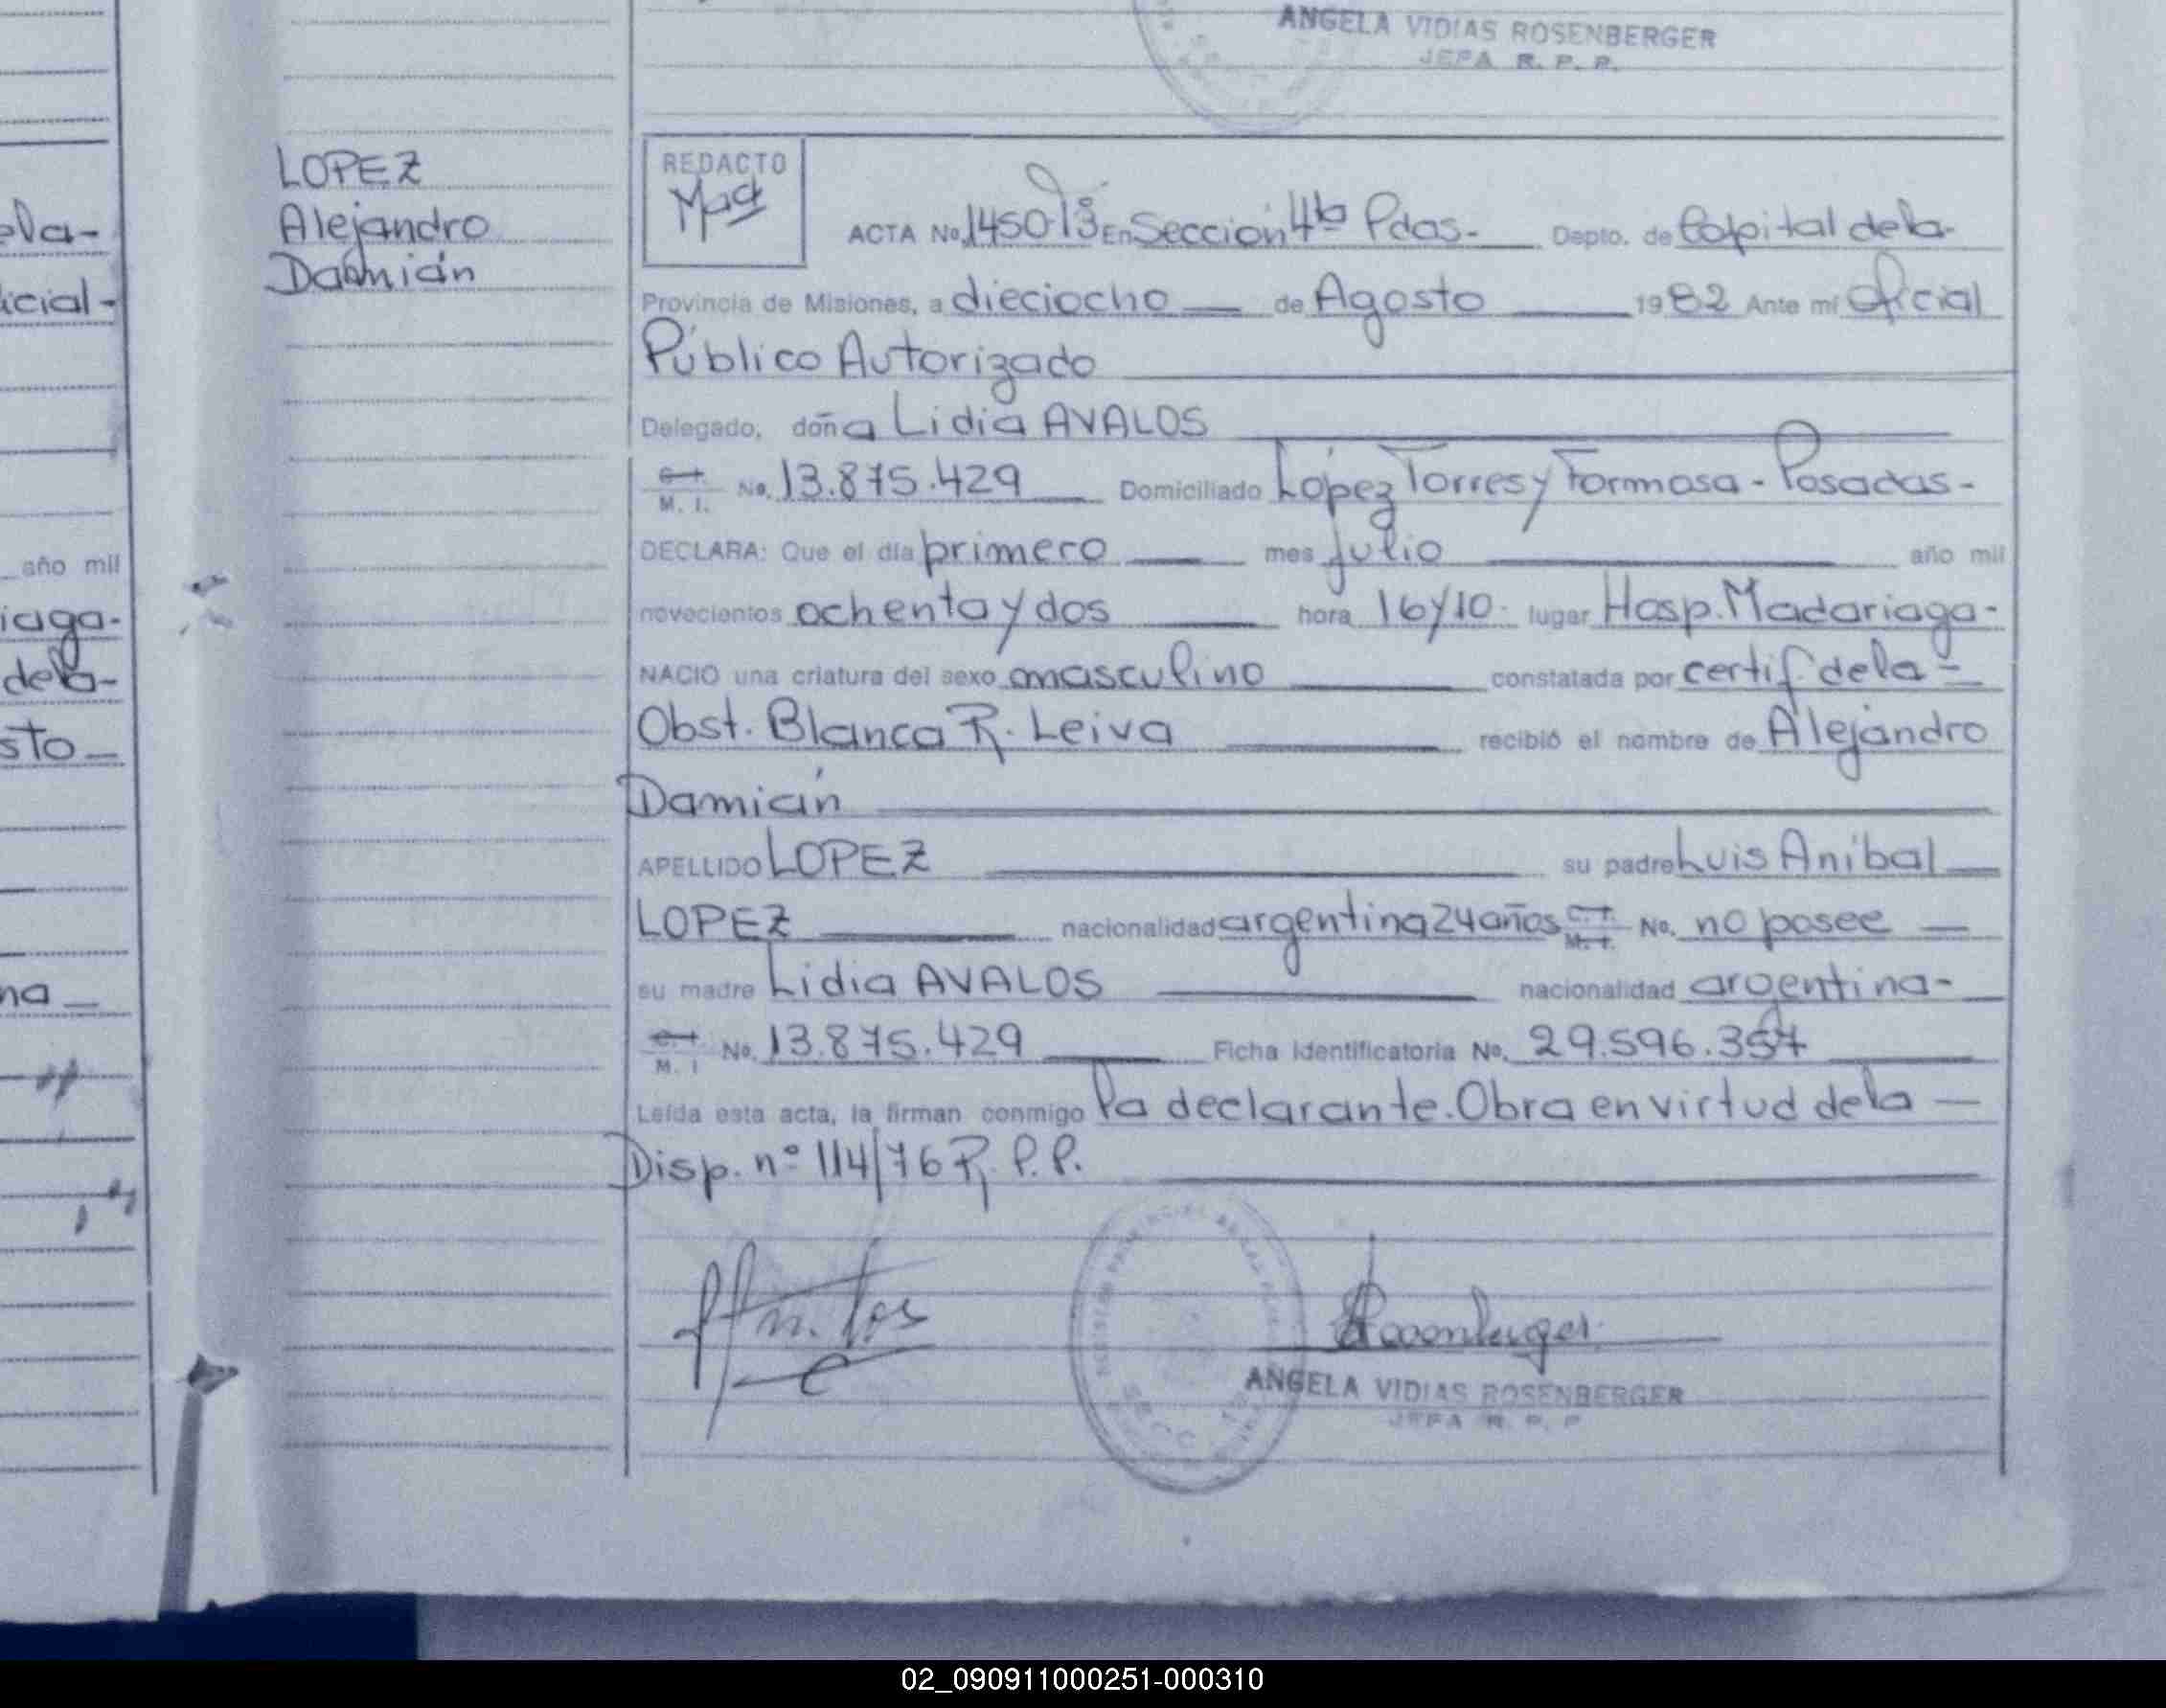 ANGELA VIDIAS ROSENBERGER
JEFA R. P. P.
LOPEZ
Alejandro
Damián
REDACTO
ACTA No. En Sección 4ta Pdas.- Depto. de Capital de la-
Provincia de Misiones, a dieciocho de Agosto 1982 Ante mí Oficial
Público Autorizado
Delegado, doña Lidia AVALOS
C.I. M. I. No. 13.875.429 Domiciliado López Torres y Formosa - Posadas-
DECLARA: Que el día primero mes julio año mil
novecientos ochenta y dos hora 16y10. lugar Hosp. Madariaga-
NACIO una criatura del sexo masculino constatada por certif. de la-
Obst. Blanca R. Leiva recibió el nombre de Alejandro
Damián
APELLIDO LOPEZ su padre Luis Aníbal
LOPEZ nacionalidad argentina 24 años C.I. M.I. No. no posee
su madre Lidia AVALOS nacionalidad argentina-
C.I. M. I No. 13.875.429 Ficha Identificatoria No. 29.596.357
Leída esta acta, la firman conmigo la declarante. Obra en virtud de la
Disp. nº 114/76 R. P. P.
ANGELA VIDIAS ROSENBERGER
JEFA R. P. P
ela-
icial-
año mil
iaga-
dela-
sto
na
02_090911000251-000310